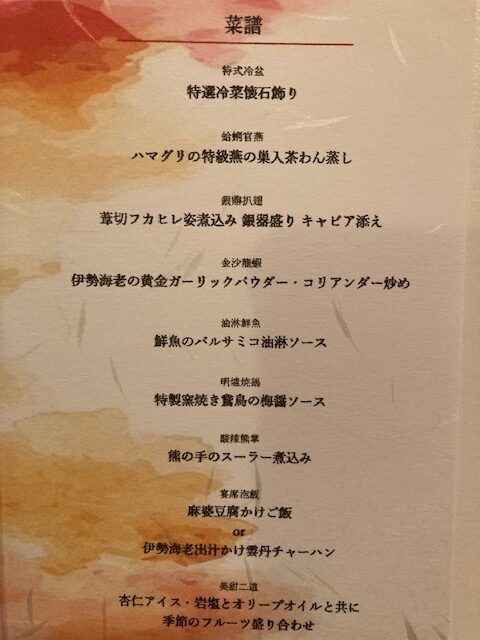 菜譜
特式冷盆
特選冷菜懐石飾り
蛤蜊官燕
ハマグリの特級燕の巣入茶わん蒸し
銀鼎扒翅
葦切フカヒレ姿煮込み 銀器盛り キャビア添え
金沙龍蝦
伊勢海老の黄金ガーリックパウダー・コリアンダー炒め
油淋鮮魚
鮮魚のバルサミコ油淋ソース
明爐焼鵝
特製窯焼き鵞鳥の梅醤ソース
酸辣熊掌
熊の手のスーラー煮込み
宴席泡飯
麻婆豆腐かけご飯
or
伊勢海老出汁かけ雲丹チャーハン
美甜二道
杏仁アイス・岩塩とオリーブオイルと共に
季節のフルーツ盛り合わせ